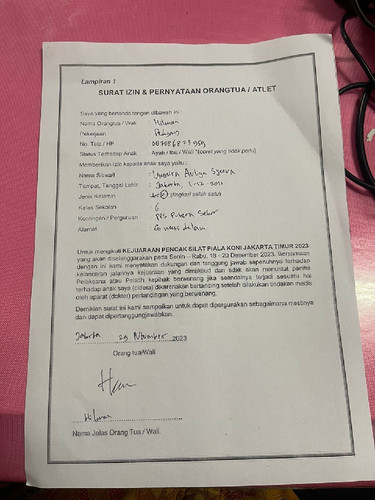 Lampiran 1
SURAT IZIN & PERNYATAAN ORANGTUA / ATLET
Saya yang bertanda tangan dibawah ini :
Nama Orangtua / Wali : Hilman
Pekerjaan :
No. Telp / HP :
Status Terhadap Anak : Ayah / Ibu / Wali *(coret yang tidak perlu)
Memberikan Izin kepada anak saya yaitu :
Nama Siswa/i :
Tempat, Tanggal Lahir : Jakarta,
Jenis Kelamin : (lingkari salah satu)
Kelas Sekolah : 6
Kontingen / Perguruan :
Alamat :
Untuk mengikuti KEJUARAAN PENCAK SILAT PIALA KONI JAKARTA TIMUR 2023
yang akan diselenggarakan pada Senin – Rabu, 18 - 20 Desember 2023. Bersamaan
dengan ini kami menyatakan dukungan dan tanggung jawab sepenuhnya terhadap
kelancaran jalannya kejuaraan yang dimaksud dan tidak akan menuntut panitia
Pelaksana atau Pelatih kepihak berwenang jika seandainya terjadi sesuatu hal
terhadap anak saya (cidera) dikarenakan bertanding setelah dilakukan tindakan medis
oleh aparat (dokter) pertandingan yang berwenang.
Demikian surat ini kami sampaikan untuk dapat dipergunakan sebagaimana mestinya
dan dapat dipertanggungjawabkan.
Jakarta 29 November 2023
Orang tua/Wali
Hilman
Nama Jelas Orang Tua / Wali